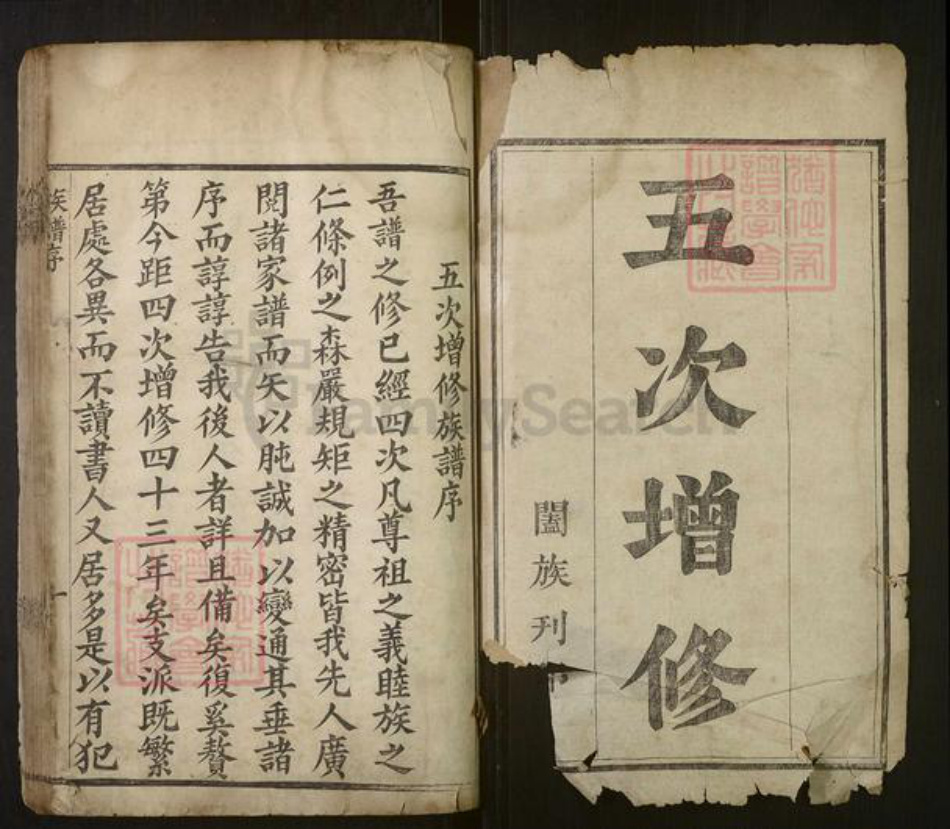 五次增修
闔族刊
五次增修族譜序
吾譜之修已經四次凡尊祖之義睦族之
仁條例之森嚴規矩之精密皆我先人廣
閱諸家譜而矢以肫誠加以變通其垂諸
序而諄諄告我後人者詳且備矣復奚贅
第今距四次增修四十三年矣支派既繁
居處各異而不讀書人又居多是以有犯
族譜序
一
FamilySearch